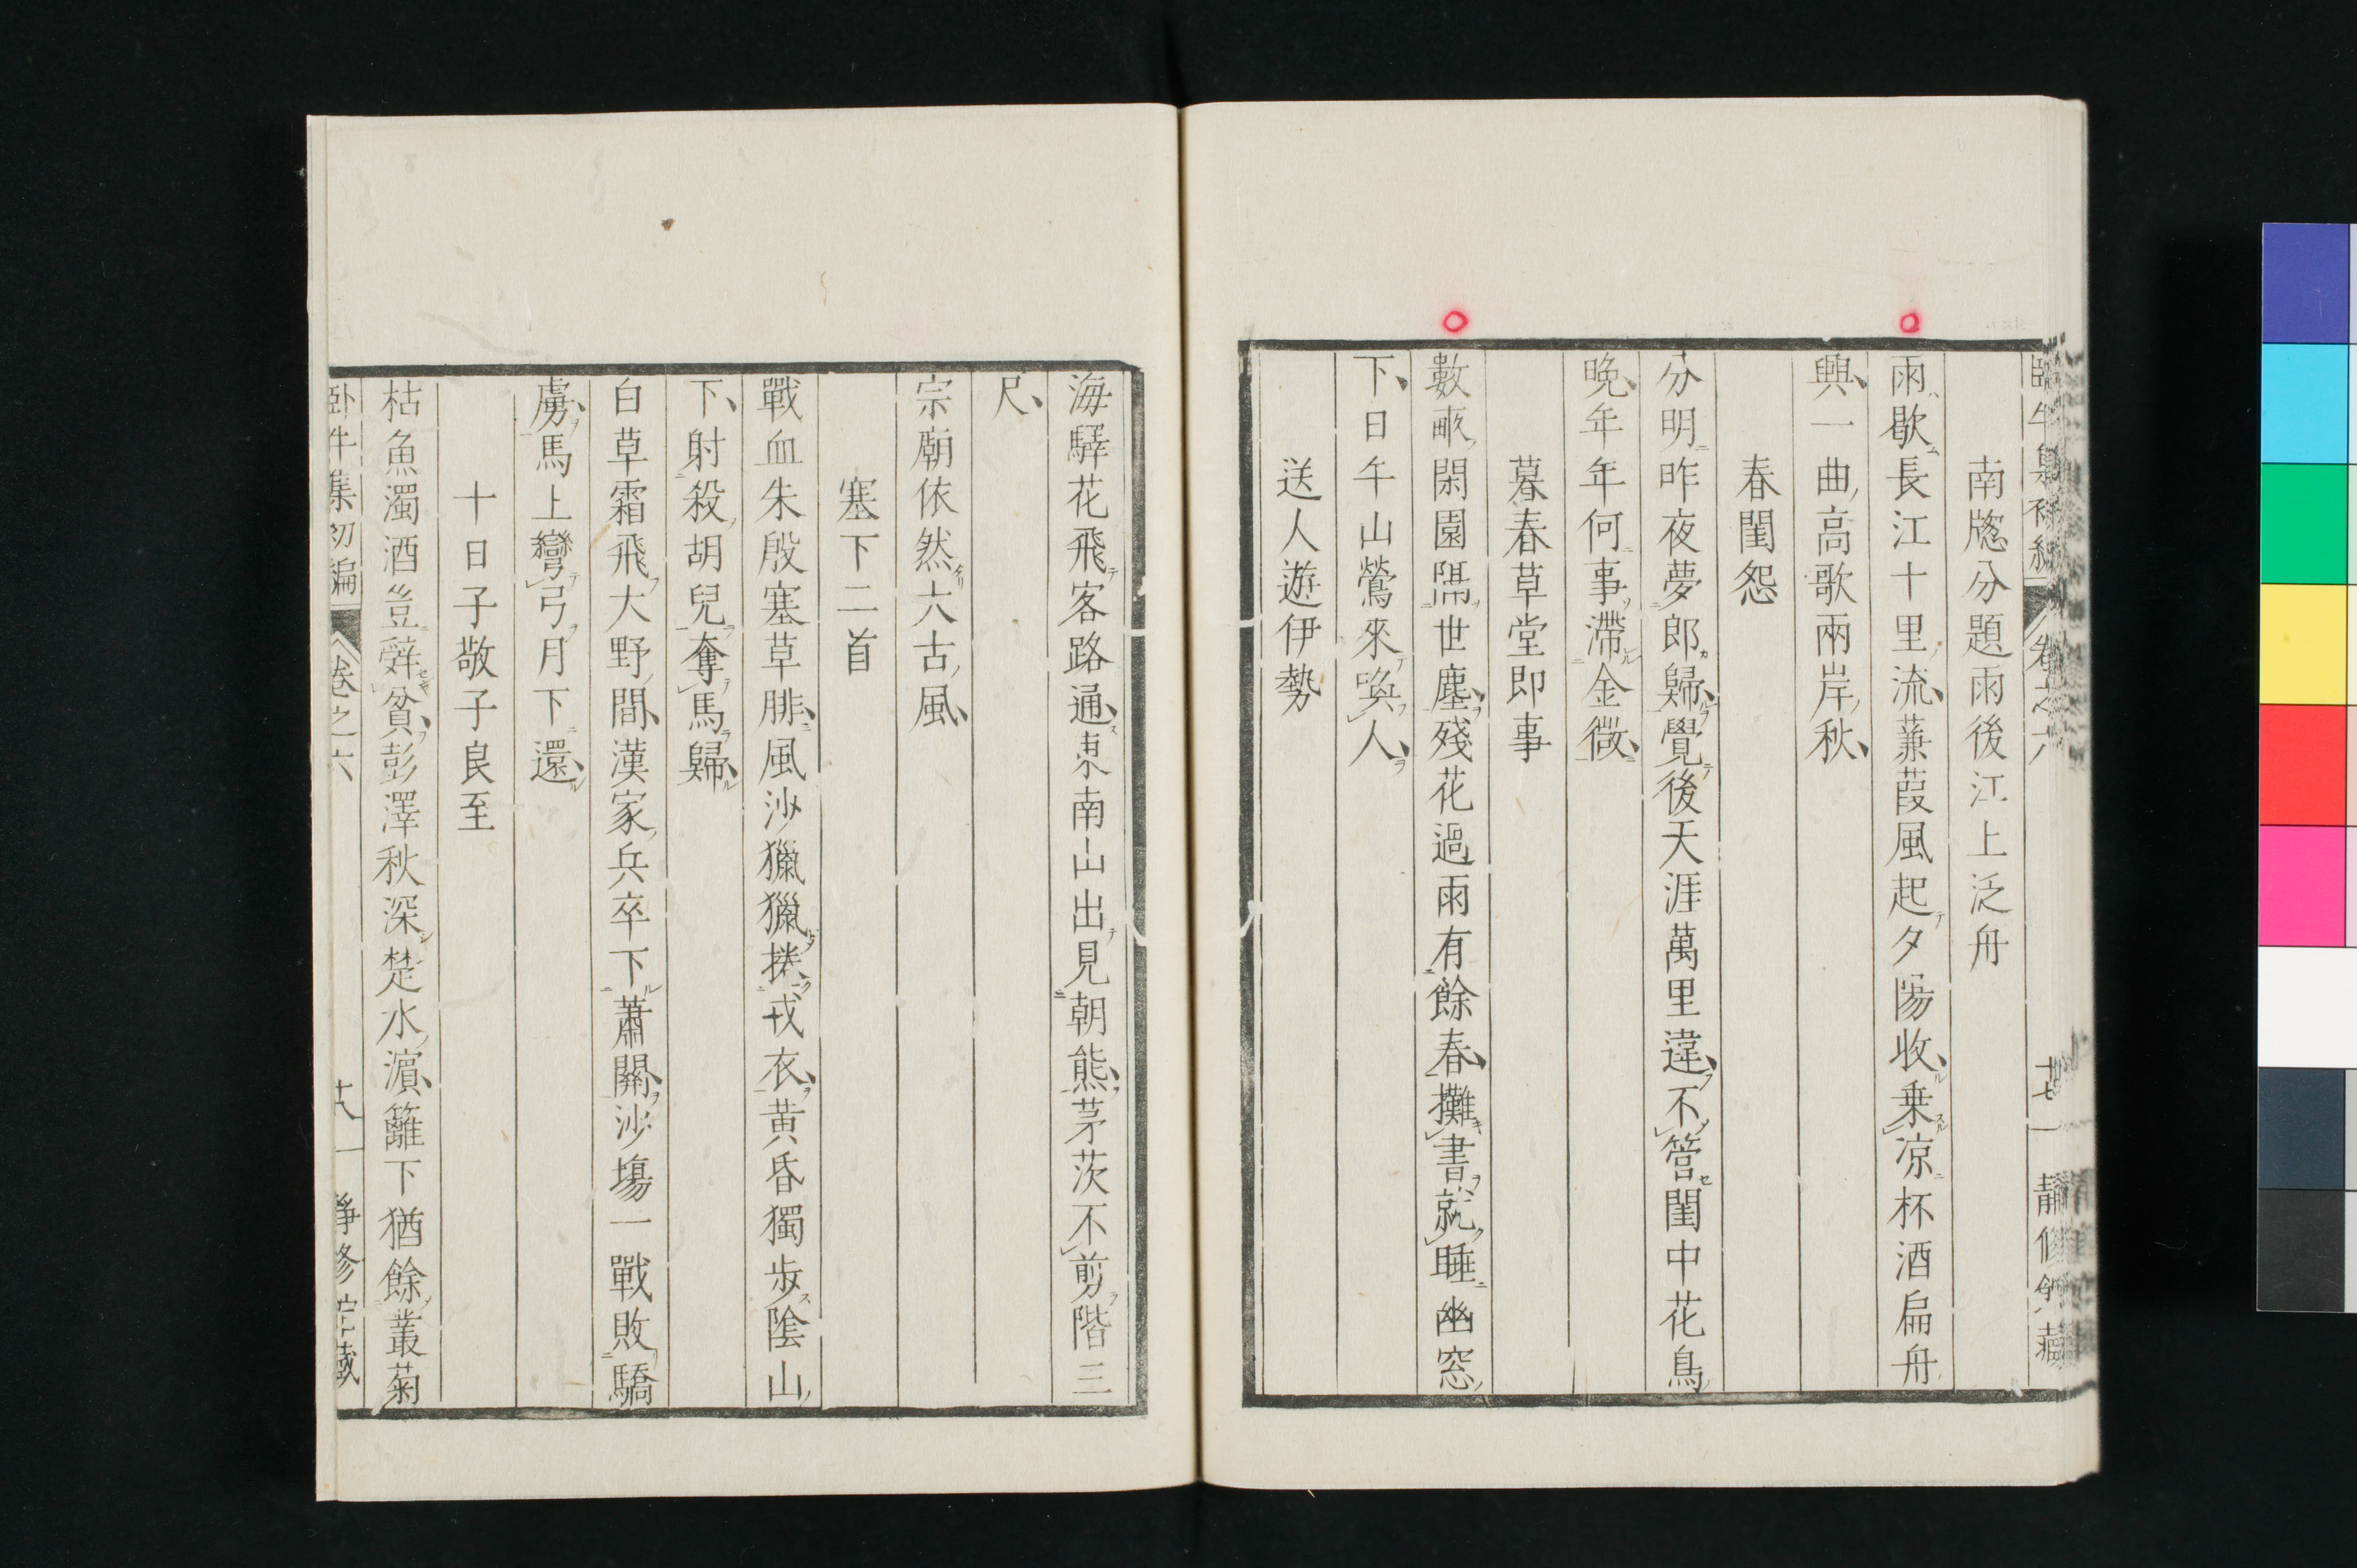 南牕分題雨後江上泛舟
雨歇長江十里流蒹葭風起夕陽收乗凉杯酒扁舟
興一曲高歌兩岸秋
春閨怨
分明昨夜夢郎歸覺後天涯萬里違不管閨中花鳥
晚年年何事滯金微
暮春草堂即事
數畝閑園隔世塵殘花過雨有餘春攤書就睡幽窓
下日午山鶯來喚人
送人遊伊勢
海驛花飛客路通東南山出見朝熊茅茨不剪階三
尺
宗廟依然大古風
塞下二首
戰血朱殷塞草腓風沙獵獵捲戎衣黃昏獨歩陰山
下射殺胡兒奪馬歸
白草霜飛大野間漢家兵卒下蕭關沙塲一戰敗驕
虜馬上彎弓月下還
十日子敬子良至
枯魚濁酒豈辭貧彭澤秋深楚水濵籬下猶餘叢菊
卧牛集初編 卷之六